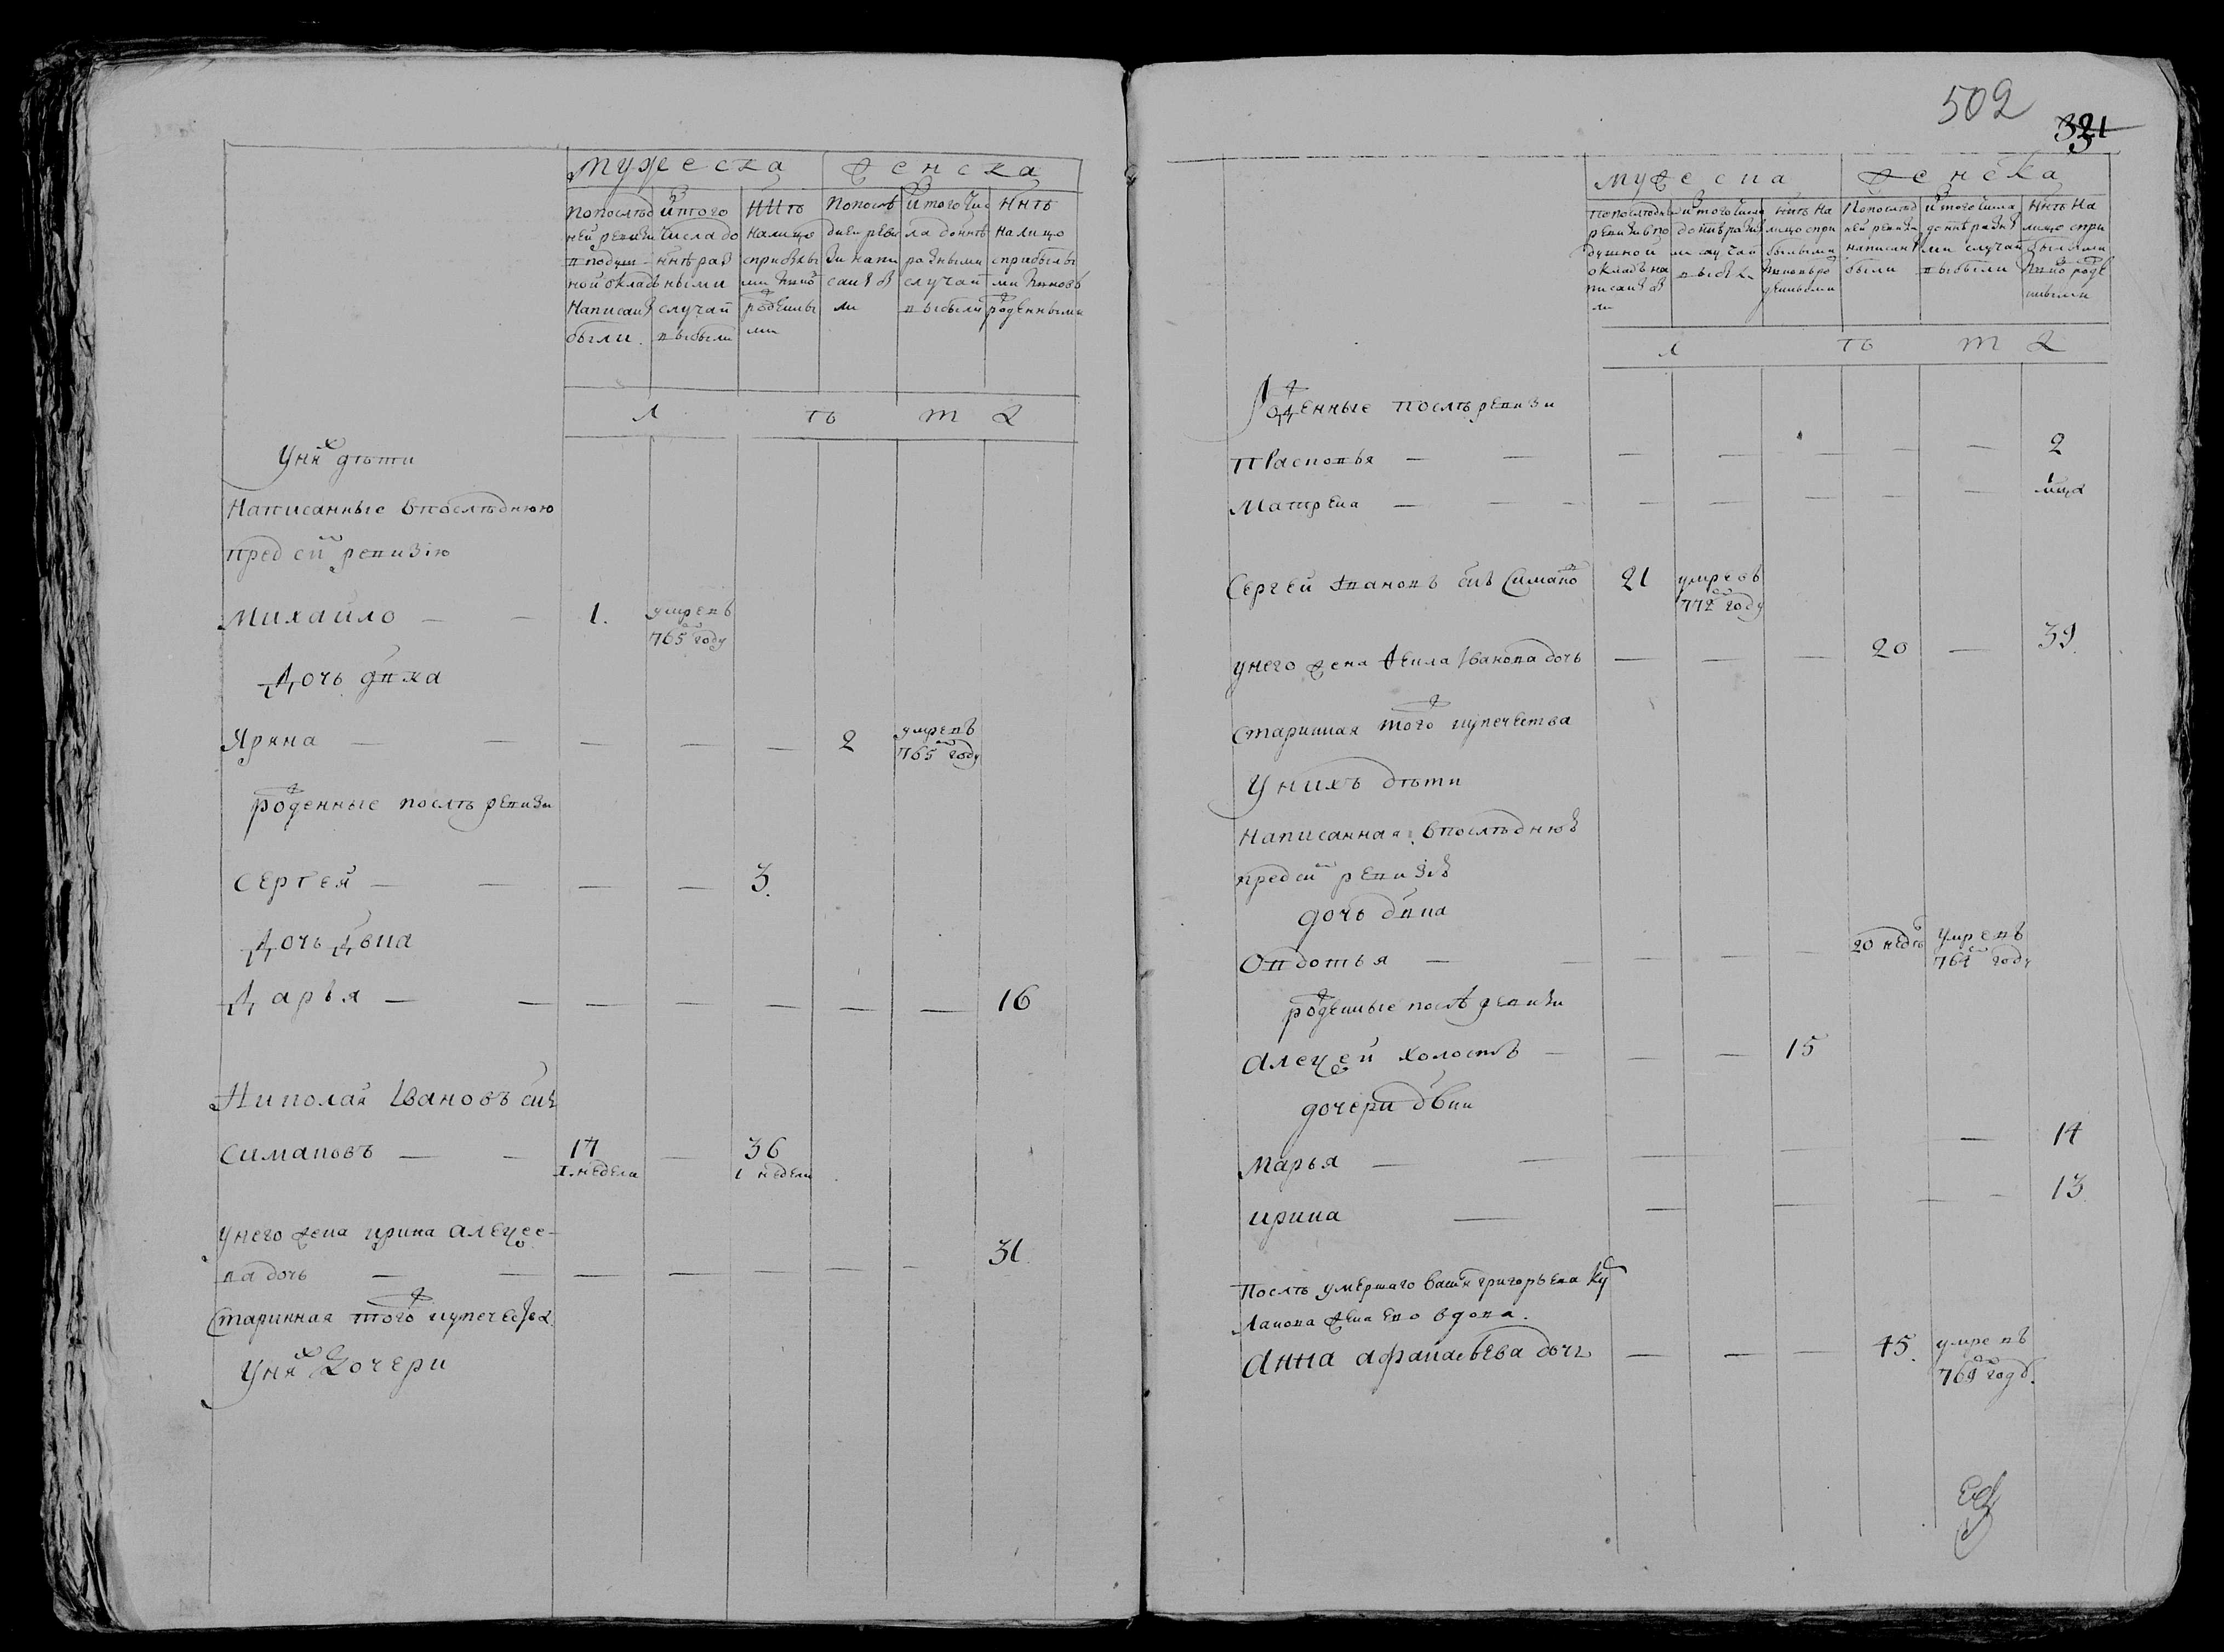 мужеска женска
Попослѣд ней ревизіи вподуш ной окладъ Написаны были.
Истого числа до ннѣ раз ными случаи выбыли
ннѣ налицо сприбылы ми вновь рожденны ми
Попослѣ дней реви зіи напи саны бы ли
Истого чис ла доннѣ разными случаи выбыли
ннѣ налицо сприбылы ми вновь рожденными
л ѣ т а
Уних дѣти
Написанные впослѣднюю
пред сей ревизію
Михайло — — 1. умре въ 765 году
Дочь двка
Ярина — — — — — 2 умре въ 765 году
рожденные послѣ ревизи
Сергей — — — — 3.
Дочь Двка
Дарья — — — — — — — 16
Николай Ивановъ снъ
Симановъ — — 17 1. недели — 36 1 недели
Унего жена ирина алеѯее-
ва дочь — — — — — — — 31.
Старинная того купечества
Уних Дочери
502
321
мужеска женска
Попослѣдней ревизіи вподушной окладъ написаны бы ли
истого числа доннѣ разны ми случаи выбыли
ннѣ на лицо спри былыми вновь ро жденными
Попослѣд ней ревизіи написаны были
истого числа доннѣ разны ми случаи выбыли
ннѣ на лицо спри былыми вновь рожде нными
л ѣ т а
Рожденные послѣ ревизи
прасковья — — — — — — — 2
Матрена — — — — — — — 1 мца
Сергей Ивановъ снъ Симановъ 21 умре въ 772 году
унего жена Акилина Иванова дочь — — — 20 — 39.
Старинная того купечества
Унихъ дѣти
Написанная впослѣднюю
пред сей ревизію
дочь двка
Овдотья — — — — — 20 недѣль умре въ 764 году
рожденные послѣ ревизи
Алеѯей холостъ — — — 15
дочери двки
Марья — — — — — 14
ирина — — — — — 13
Послѣ умершаго Василья григорьева Ку
ланова жена ево вдова.
Анна афанасьева дочь — — — 45. умре въ 769 году.